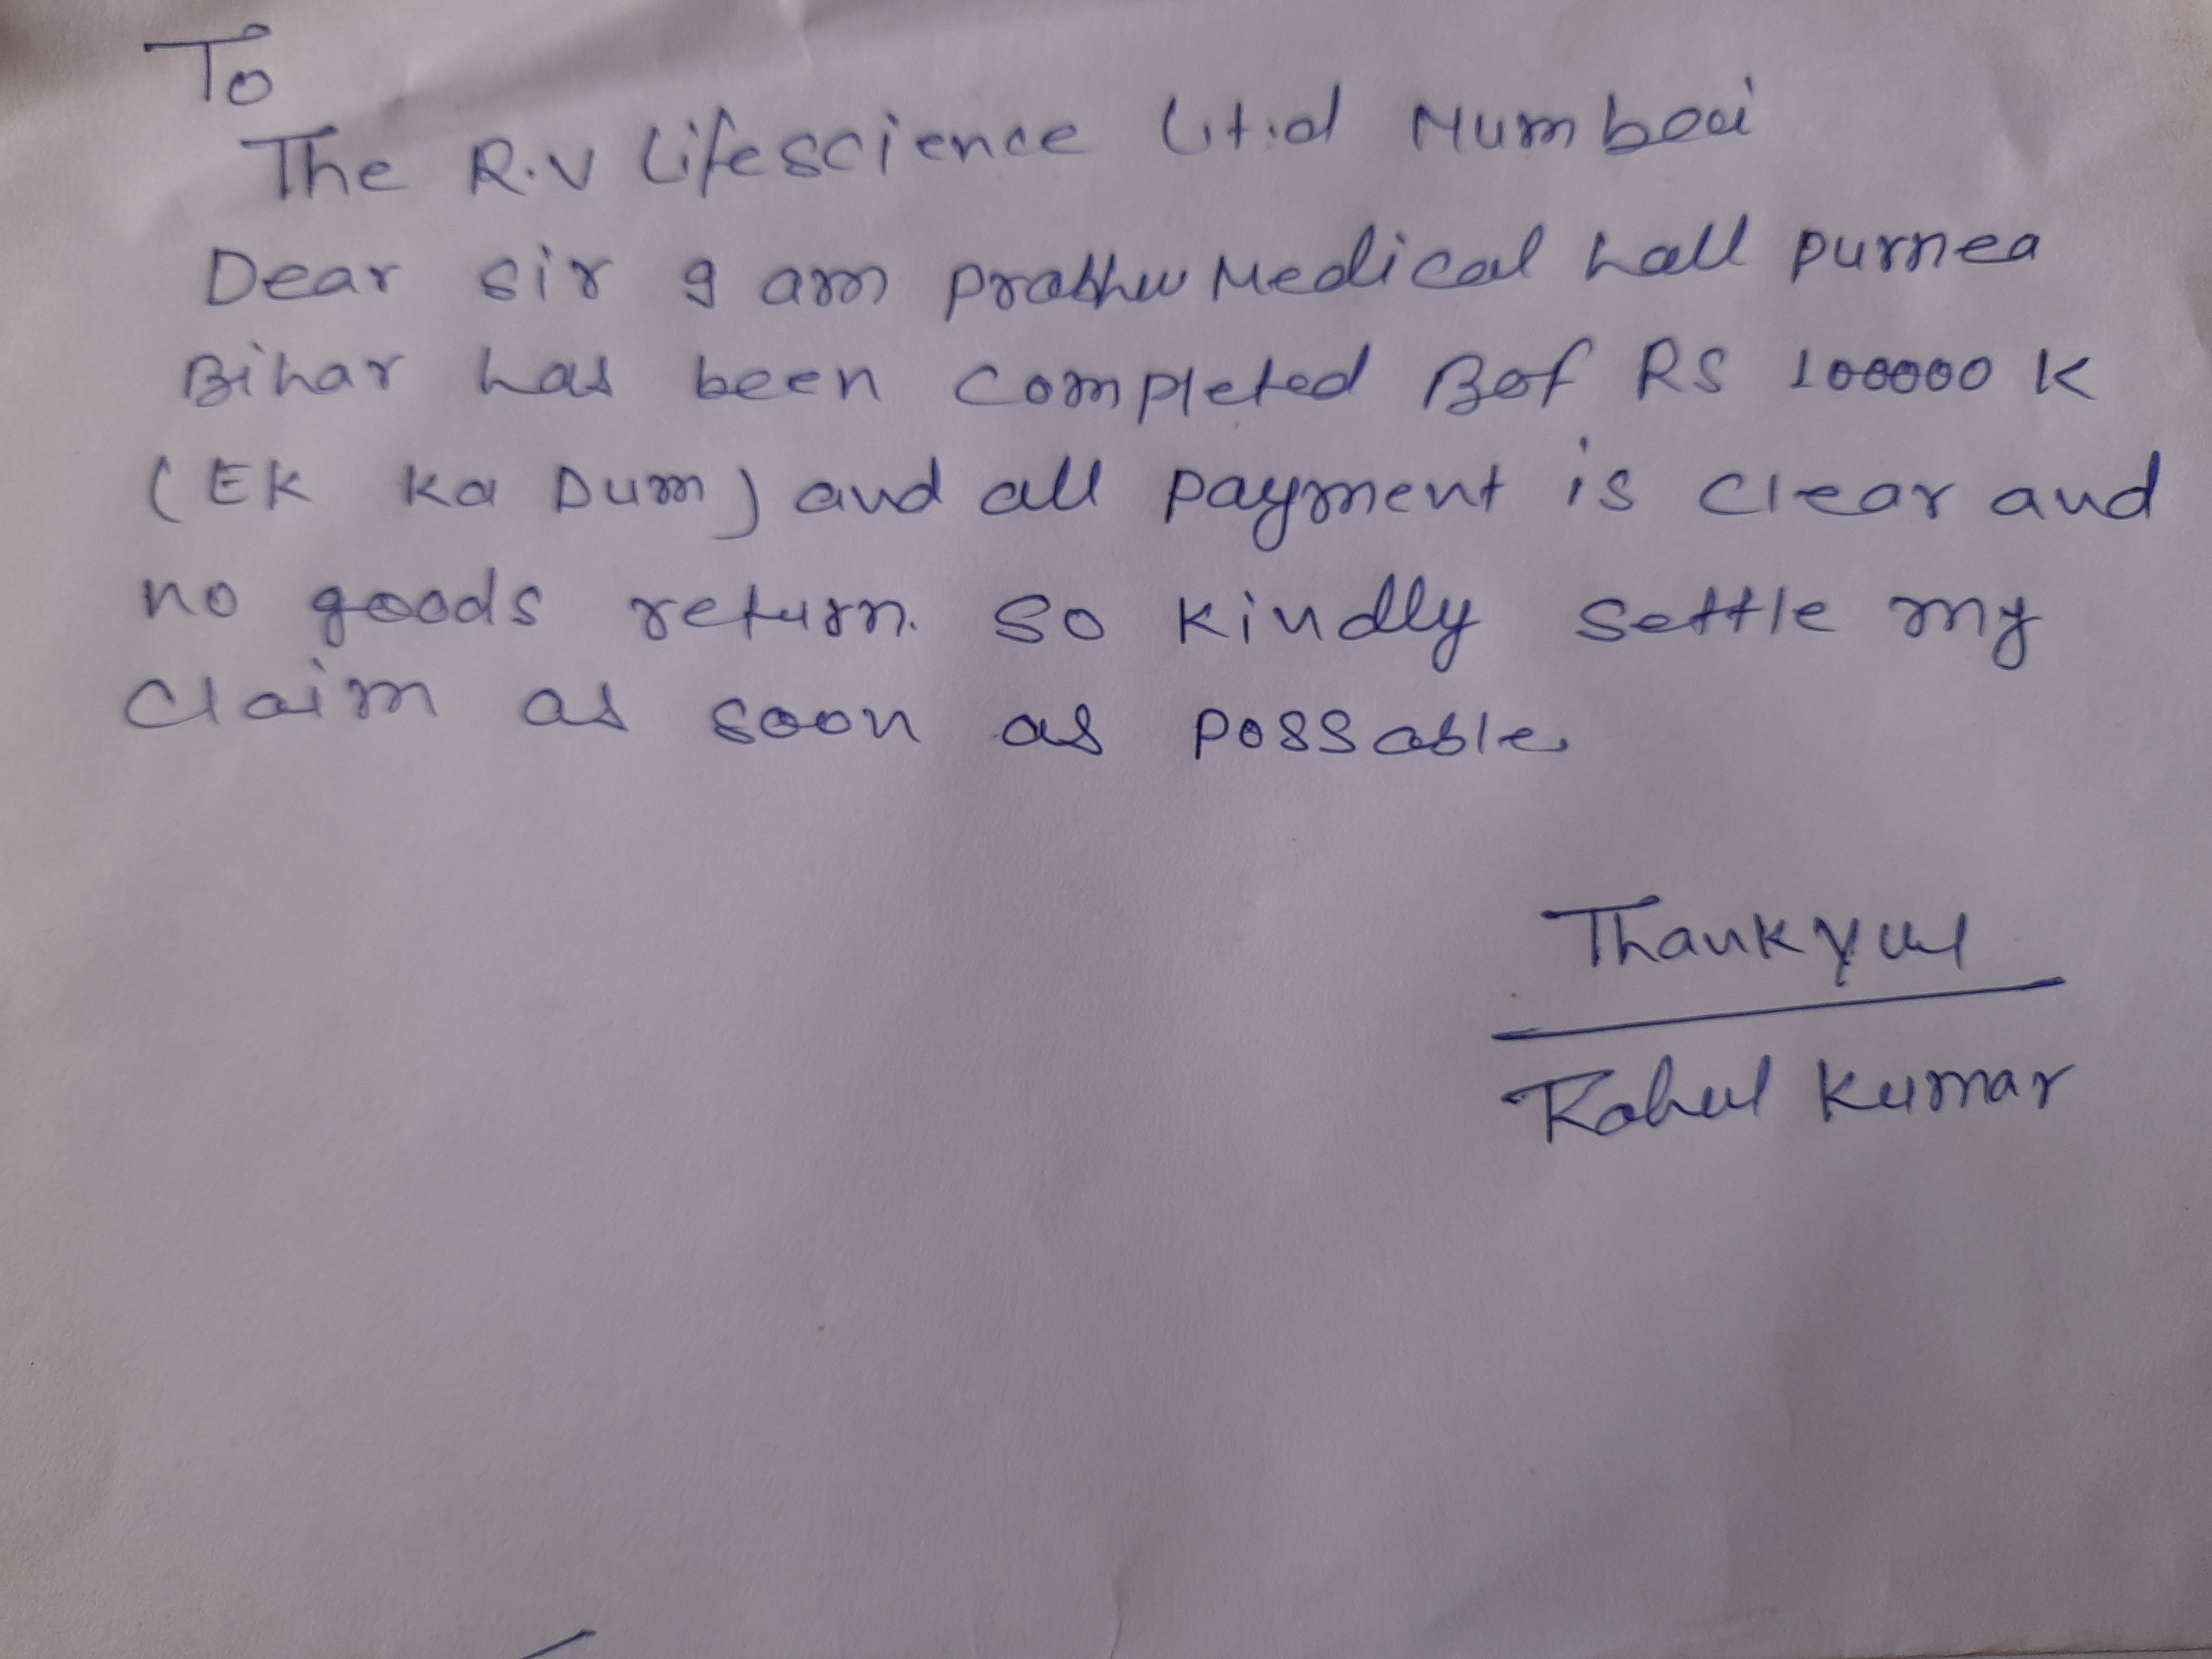 To
The R.V Lifescience Lt.d Mumbai
Dear sir I am Prabhu Medical hall purnea
Bihar has been completed Bof RS 100000 K
(EK Ka Dum) and all payment is clear and
no goods return. So kindly settle my
Claim as soon as possable.
Thank you
Rahul Kumar